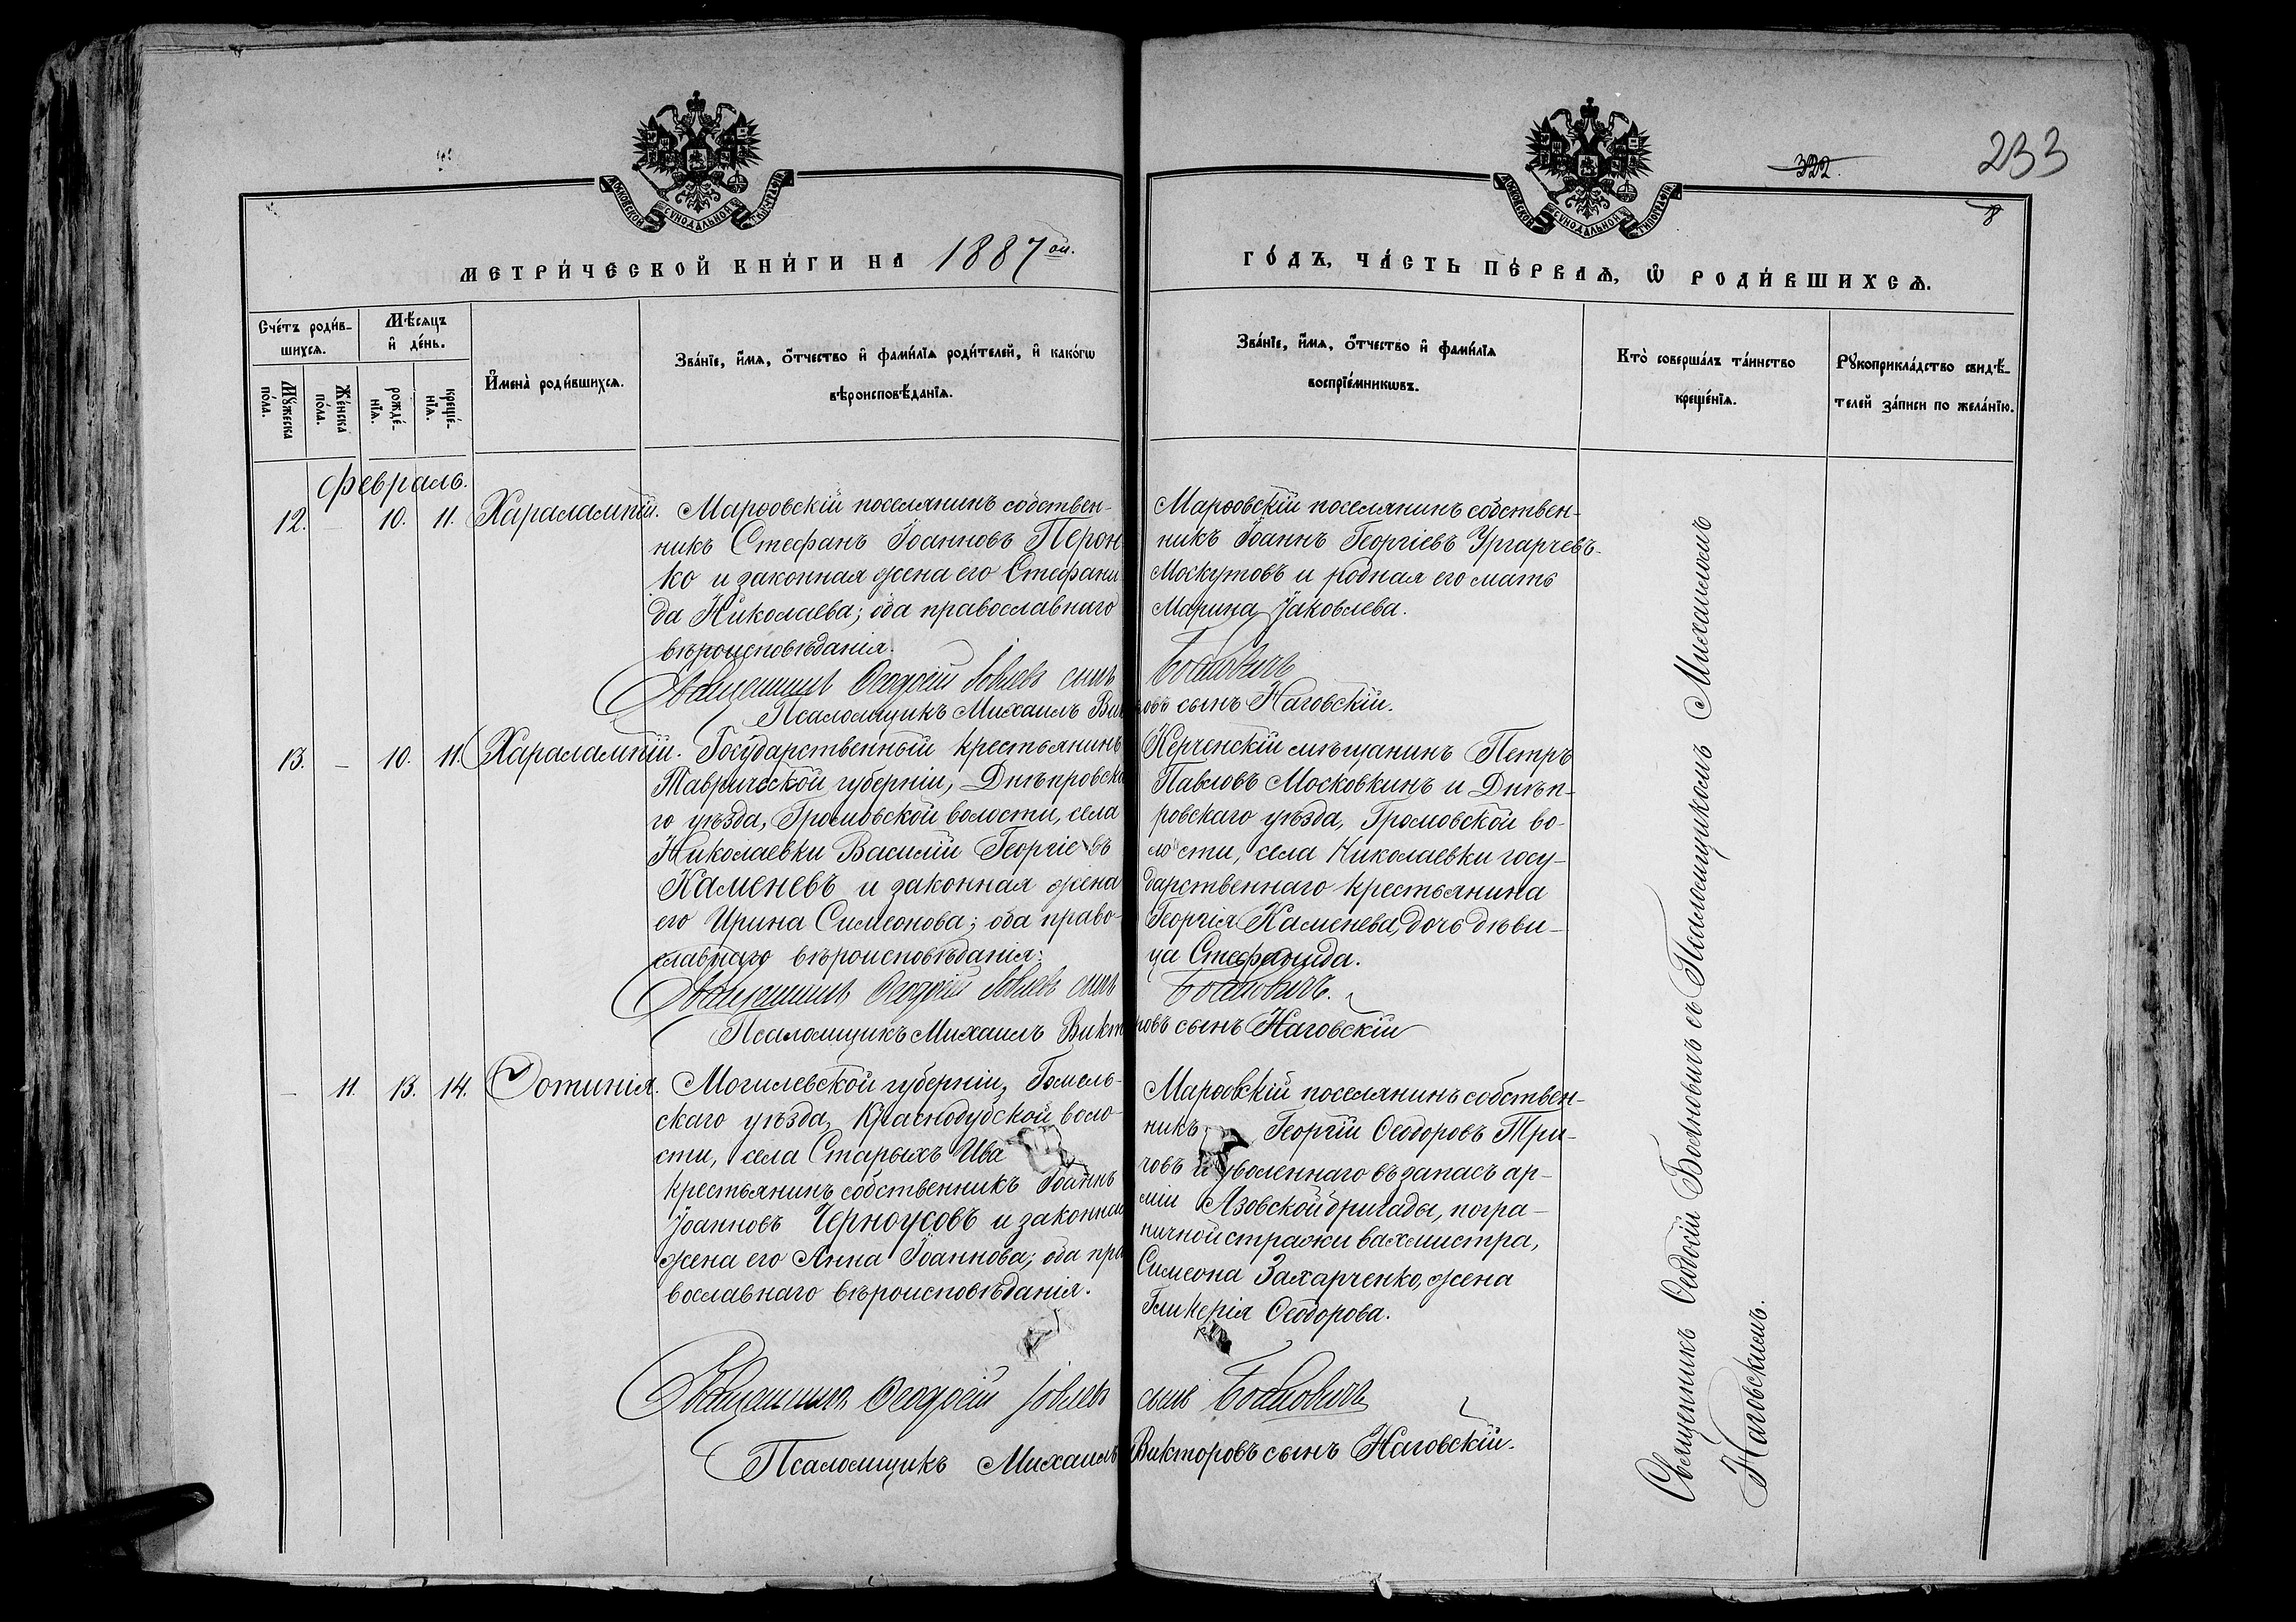 322.
233
8
МОСКОВСКОЙ СУНОДАЛЬНОЙ ТИПОГРАФІИ
МОСКОВСКОЙ СУНОДАЛЬНОЙ ТИПОГРАФІИ
МЕТРИ́ЧЕСКОЙ КНИ́ГИ НА 1887 ой.
ГО́ДЪ, ЧА́СТЬ ПЕ́РВАѦ, Ѡ҆ РОДИ́ВШИХСѦ.
Сче́тъ роди́в-
шихсѧ.
Мѣ́сѧцъ
и҆ де́нь.
Мꙋ́жеска
по́ла.
Же́нска
по́ла.
рожде́-
нїѧ.
креще́-
нїѧ.
И҆мена̀ роди́вшихсѧ.
Зва́нїе, и҆́мѧ, ѻ҆́тчество и҆ фами́лїѧ роди́телей, и҆ како́гѡ
вѣроисповѣ́данїѧ.
Зва́нїе, и҆́мѧ, ѻ҆́тчество и҆ фами́лїѧ
воспрїе́мникѡвъ.
Кто̀ соверша́лъ та́инство
креще́нїѧ.
Рꙋкоприкла́дство свидѣ́-
телей за́писи по жела́нїю.
Февраль.
12. - 10. 11. Харалампій.
Марѳовскій поселянинъ собствен-
никъ Стефанъ Іоанновъ Перон-
ко и законная жена его Стефани-
да Николаева; оба православнаго
вѣроисповѣданія.
Марѳовскій поселянинъ собствен-
никъ Іоаннъ Георгіевъ Ургарчевъ-
Москутовъ и родная его мать
Марина Іаковлева.
Священникъ Ѳеодосій Іовлевъ сынъ Бояновичъ
Псаломщикъ Михаилъ Викторовъ сынъ Наговскій.
13. - 10. 11. Харалампій.
Государственный крестьянинъ
Таврической губерніи, Днѣпровска-
го уѣзда, Громовской волости, села
Николаевки Василій Георгіевъ
Каменевъ и законная жена
его Ирина Симеонова; оба право-
славнаго вѣроисповѣданія.
Керченскій мѣщанинъ Петръ
Павловъ Московкинъ и Днѣп-
ровскаго уѣзда, Громовской во-
лости, села Николаевки госу-
дарственнаго крестьянина
Георгія Каменева, дочь дѣви-
ца Стефанида.
Священникъ Ѳеодосій Іовлевъ сынъ Бояновичъ.
Псаломщикъ Михаилъ Викторовъ сынъ Наговскій
- 11. 13. 14. Фотинія.
Могилевской губерніи, Гомель-
скаго уѣзда, Краснобудской воло-
сти, села Старыхъ Ива
крестьянинъ собственникъ Іоаннъ
Іоанновъ Черноусовъ и законная
жена его Анна Іоаннова; оба пра-
вославнаго вѣроисповѣданія.
Марѳовскій поселянинъ собствен-
никъ Георгій Ѳеодоровъ Три-
говъ и уволеннаго въ запасъ ар-
міи Азовской бригады, погра-
ничной стражи вахмистра,
Симеона Захарченко, жена
Гликерія Ѳеодорова.
Священникъ Ѳеодосій Іовлевъ сынъ Бояновичъ
Псаломщикъ Михаилъ Викторовъ сынъ Наговскій.
Священникъ Ѳеодосій Бояновичъ съ Псаломщикомъ Михаиломъ
Наговскимъ.